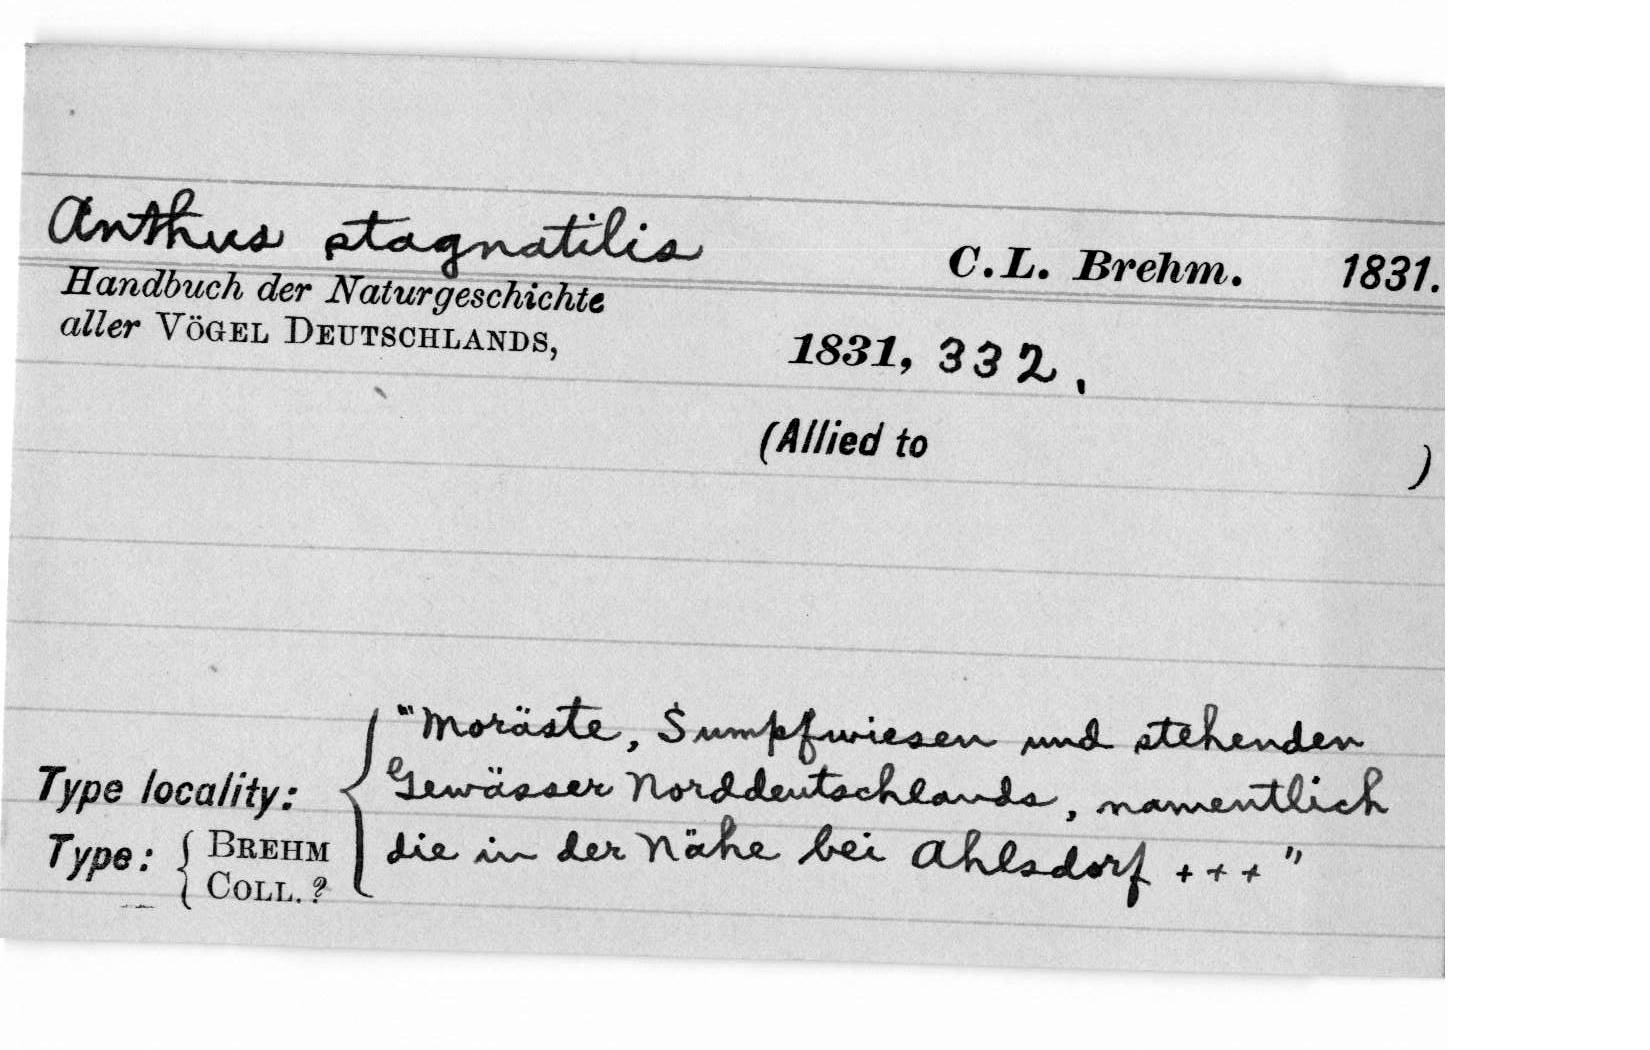 Anthus stagnatilis C.L. Brehm. 1831.
Handbuch der Naturgeschichte
aller VÖGEL DEUTSCHLANDS, 1831, 332.
(Allied to )
"Moräste, Sumpfwiesen und stehenden
Type locality: Gewässer Norddeutschlands, namentlich
Type: { BREHM COLL. ? die in der Nähe bei Ahlsdorf +++"